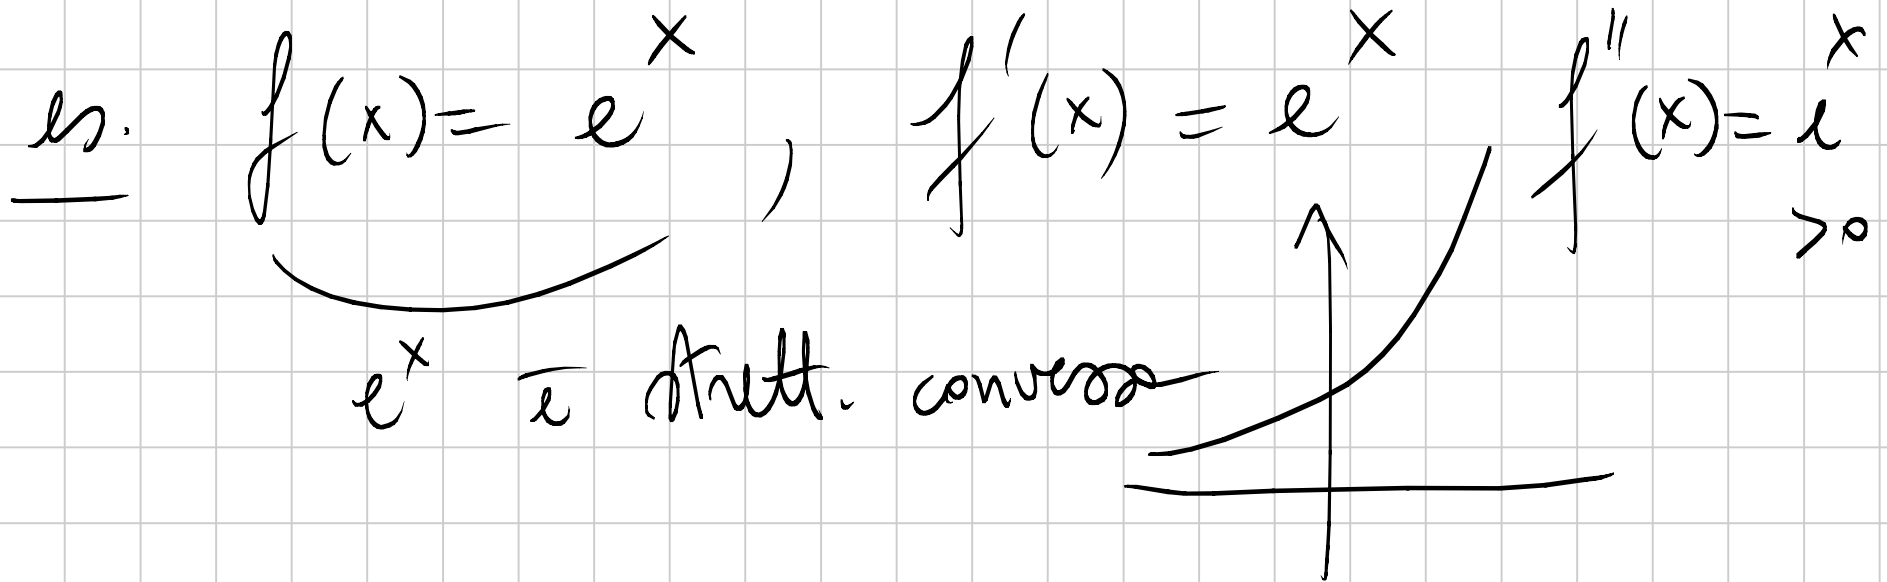 es. f(x) = e^x , f'(x) = e^x f''(x) = e^x
>0
e^x è strett. convessa